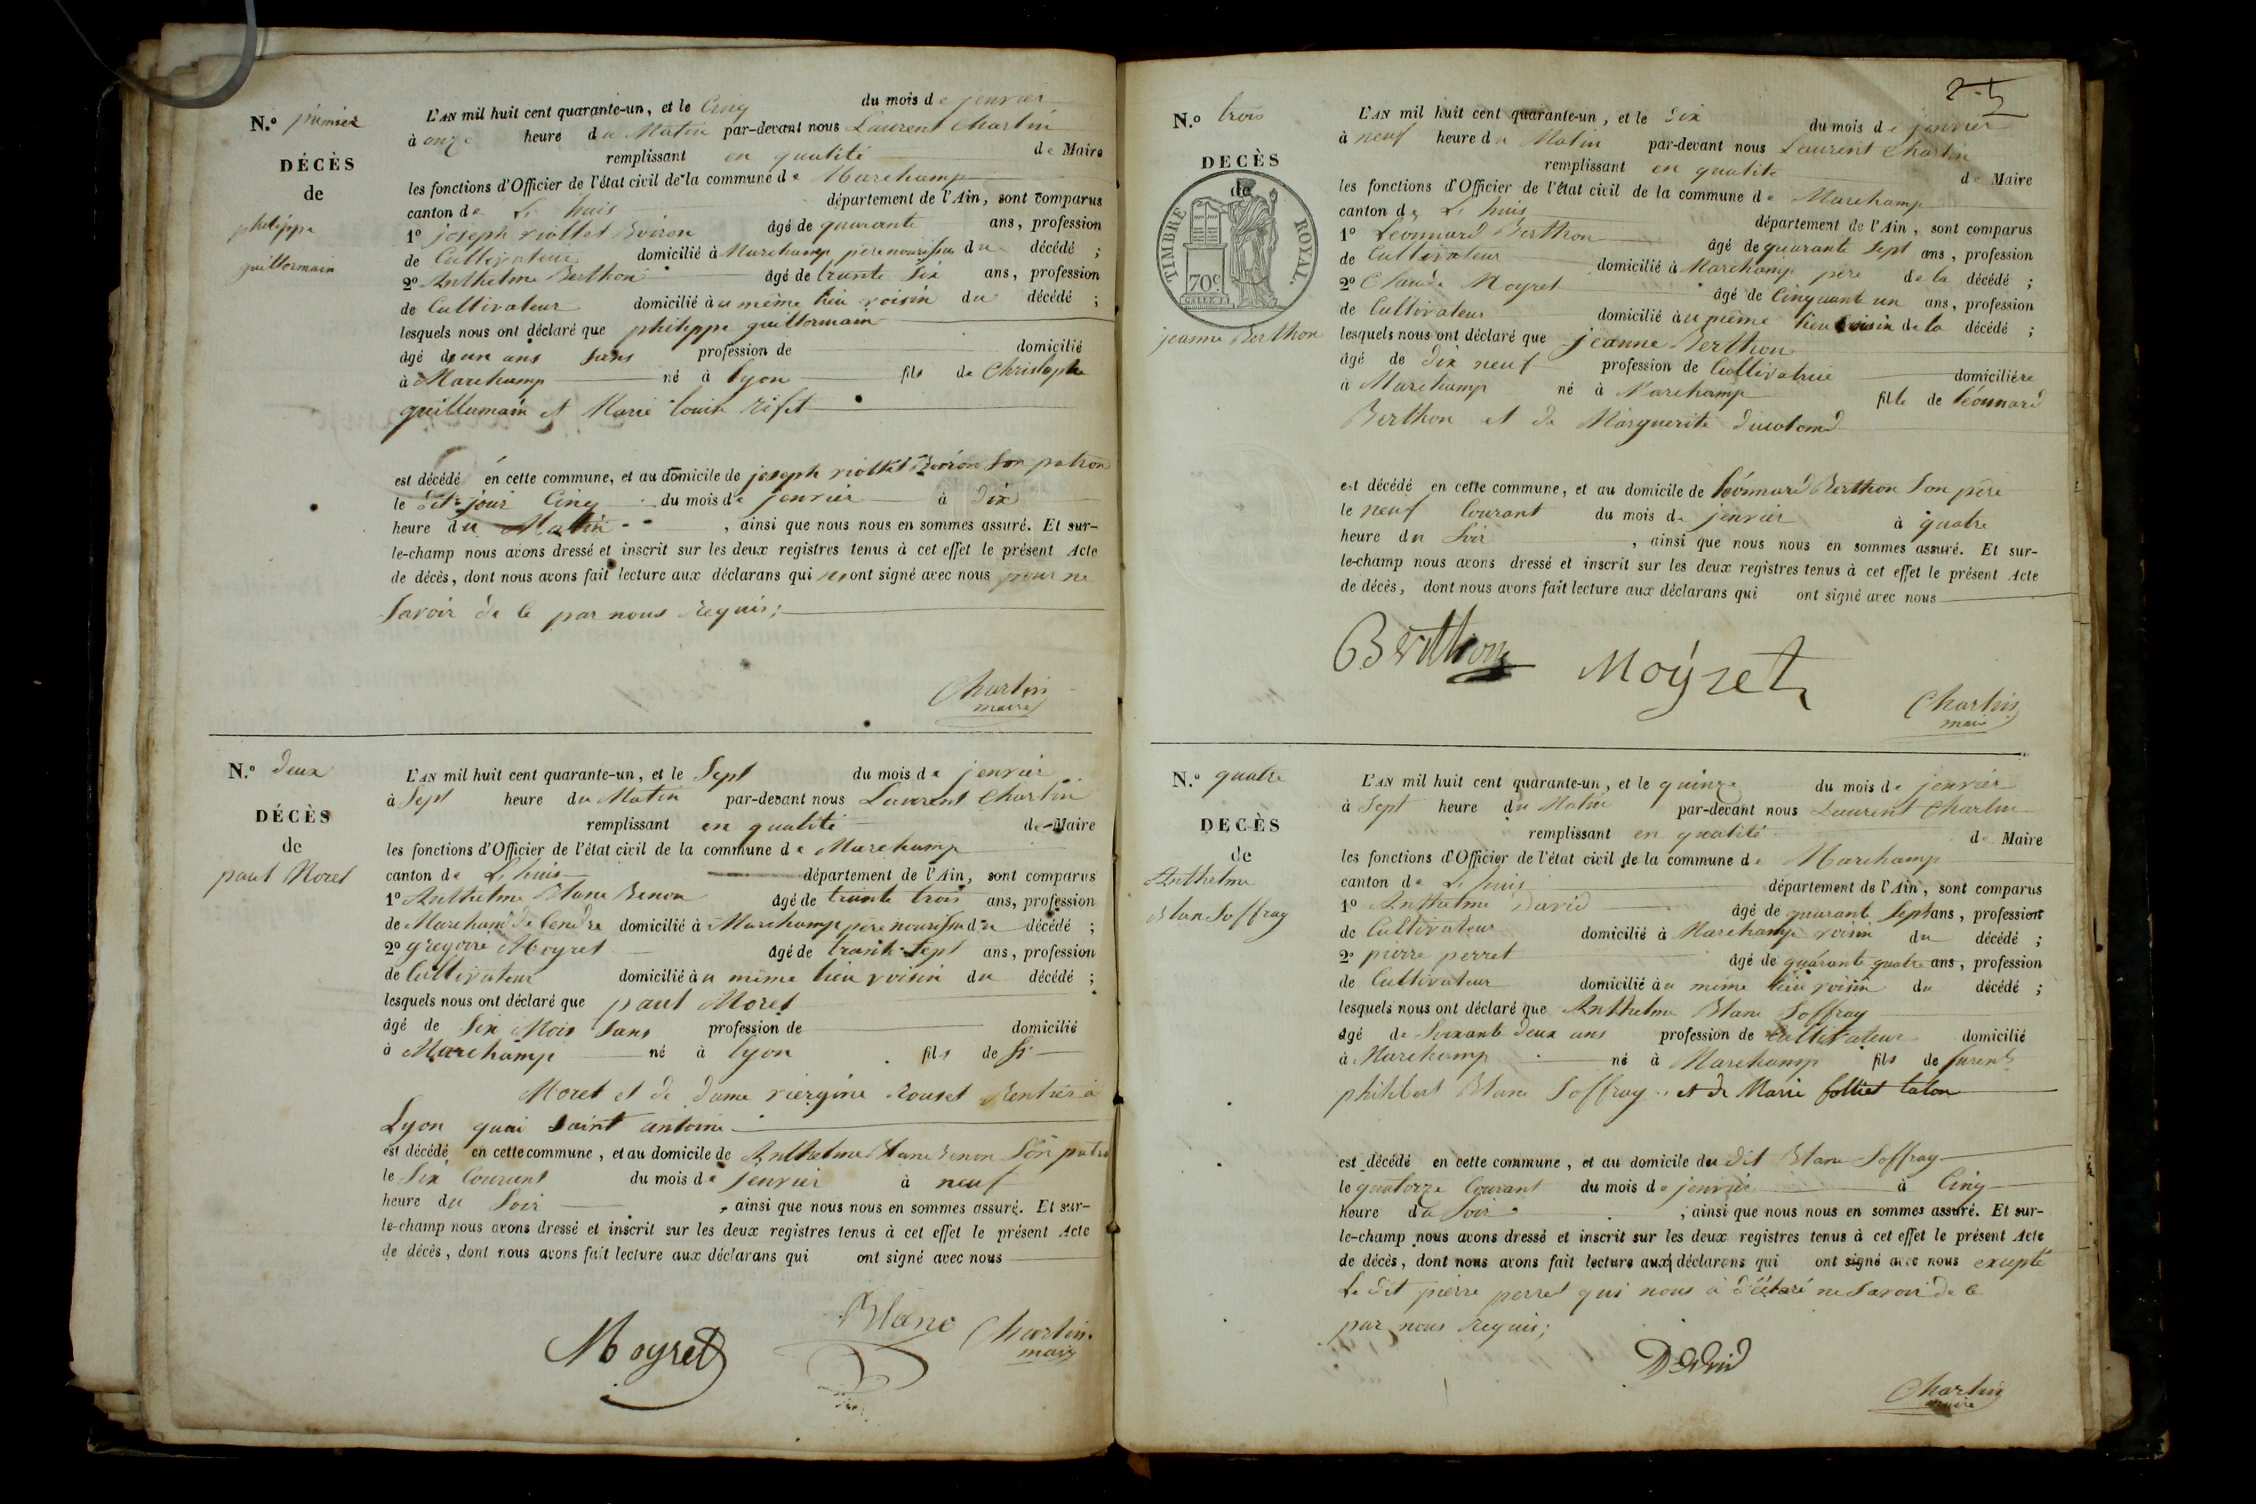 N.º premier
DÉCÈS
de
philippe
guillermain
L'AN mil huit cent quarante-un, et le Cinq du mois de jenvier
à onze heure du Matin par-devant nous Laurent Chartin
remplissant en qualité de Maire
les fonctions d'Officier de l'état civil de la commune de Marchamp
canton de L'huis département de l'Ain, sont comparus
1º joseph riottet Boiron âgé de quarante ans, profession
de Cultivateur domicilié à Marchamp père nourissier du décédé ;
2º Anthelme Berthon âgé de trante Six ans, profession
de Cultivateur domicilié au même lieu voisin du décédé ;
lesquels nous ont déclaré que philippe guillermain
âgé de un ans Sans profession de domicilié
à Marchamp né à Lyon fils de Christophe
guillumain et Marie Louise rifet
est décédé en cette commune, et au domicile de joseph riottet Boiron Son patron
le dit jour Cinq du mois de jenvier à dix
heure du Matin , ainsi que nous nous en sommes assuré. Et sur-
le-champ nous avons dressé et inscrit sur les deux registres tenus à cet effet le présent Acte
de décès, dont nous avons fait lecture aux déclarans qui n'ont signé avec nous pour ne
Savoir de ce par nous requis;
Chartin
maire
N.º deux
DÉCÈS
de
paul Moret
L'AN mil huit cent quarante-un, et le Sept du mois de jenvier
à Sept heure du Matin par-devant nous Laurent Chartin
remplissant en qualité de Maire
les fonctions d'Officier de l'état civil de la commune de Marchamp
canton de L'huis département de l'Ain, sont comparus
1º Anthelme Blanc Benon âgé de trante trois ans, profession
de Marchand de Cendre domicilié à Marchamp père nourissier du décédé ;
2º gregoire Moyret âgé de trante Sept ans, profession
de Cultivateur domicilié au même lieu voisin du décédé ;
lesquels nous ont déclaré que paul Moret
âgé de Six Mois Sans profession de domicilié
à Marchamp né à Lyon fils de Sr
Moret et de dame viergine Rouset Rentier à
Lyon quai Saint antoine
est décédé en cette commune, et au domicile de Anthelme Blanc Benon Son patron
le Six Courant du mois de jenvier à neuf
heure du Soir , ainsi que nous nous en sommes assuré. Et sur-
le-champ nous avons dressé et inscrit sur les deux registres tenus à cet effet le présent Acte
de décès, dont nous avons fait lecture aux déclarans qui ont signé avec nous
Moyret Blanc Chartin
maire
N.º trois
DECÈS
de
TIMBRE ROYAL.
70c
jeanne Berthon
L'AN mil huit cent quarante-un, et le dix du mois de jenvier
à neuf heure du Matin par-devant nous Laurent Chartin
remplissant en qualité de Maire
les fonctions d'Officier de l'état civil de la commune de Marchamp
canton de L'huis département de l'Ain, sont comparus
1º Léonnard Berthon âgé de quarante Sept ans, profession
de Cultivateur domicilié à Marchamp père de la décédé ;
2º Claude Moyret âgé de Cinquante un ans, profession
de Cultivateur domicilié au même lieu voisin de la décédé ;
lesquels nous ont déclaré que jeanne Berthon
âgé de dix neuf profession de Cultivatrice domiciliére
à Marchamp né à Marchamp fille de Léonnard
Berthon et de Marguerite
est décédé en cette commune, et au domicile de Léonnard Berthon Son père
le neuf Courant du mois de jenvier à quatre
heure du Soir , ainsi que nous nous en sommes assuré. Et sur-
le-champ nous avons dressé et inscrit sur les deux registres tenus à cet effet le présent Acte
de décès, dont nous avons fait lecture aux déclarans qui ont signé avec nous
Berthon Moyret
Chartin
maire
N.º quatre
DECÈS
de
Anthelme
Blan Soffray
L'AN mil huit cent quarante-un, et le quinze du mois de jenvier
à Sept heure du Matin par-devant nous Laurent Chartin
remplissant en qualité de Maire
les fonctions d'Officier de l'état civil de la commune de Marchamp
canton de L'huis département de l'Ain, sont comparus
1º Anthelme David âgé de quarante Sept ans, profession
de Cultivateur domicilié à Marchamp voisin du décédé ;
2º pierre perret âgé de quarante quatre ans, profession
de Cultivateur domicilié au même lieu voisin du décédé ;
lesquels nous ont déclaré que Anthelme Blanc Soffray
âgé de Soixante deux ans profession de Cultivateur domicilié
à Marchamp né à Marchamp fils de furent
philibert Blanc Soffray et de Marie folliet talon
est décédé en cette commune, et au domicile du dit Blanc Soffray
le quatorze Courant du mois de jenvier à Cinq
heure du Soir , ainsi que nous nous en sommes assuré. Et sur-
le-champ nous avons dressé et inscrit sur les deux registres tenus à cet effet le présent Acte
de décès, dont nous avons fait lecture aux déclarans qui ont signé avec nous excepté
Le dit pierre perret qui nous a déclaré ne Savoir de ce
par nous requis;
David
Chartin
maire